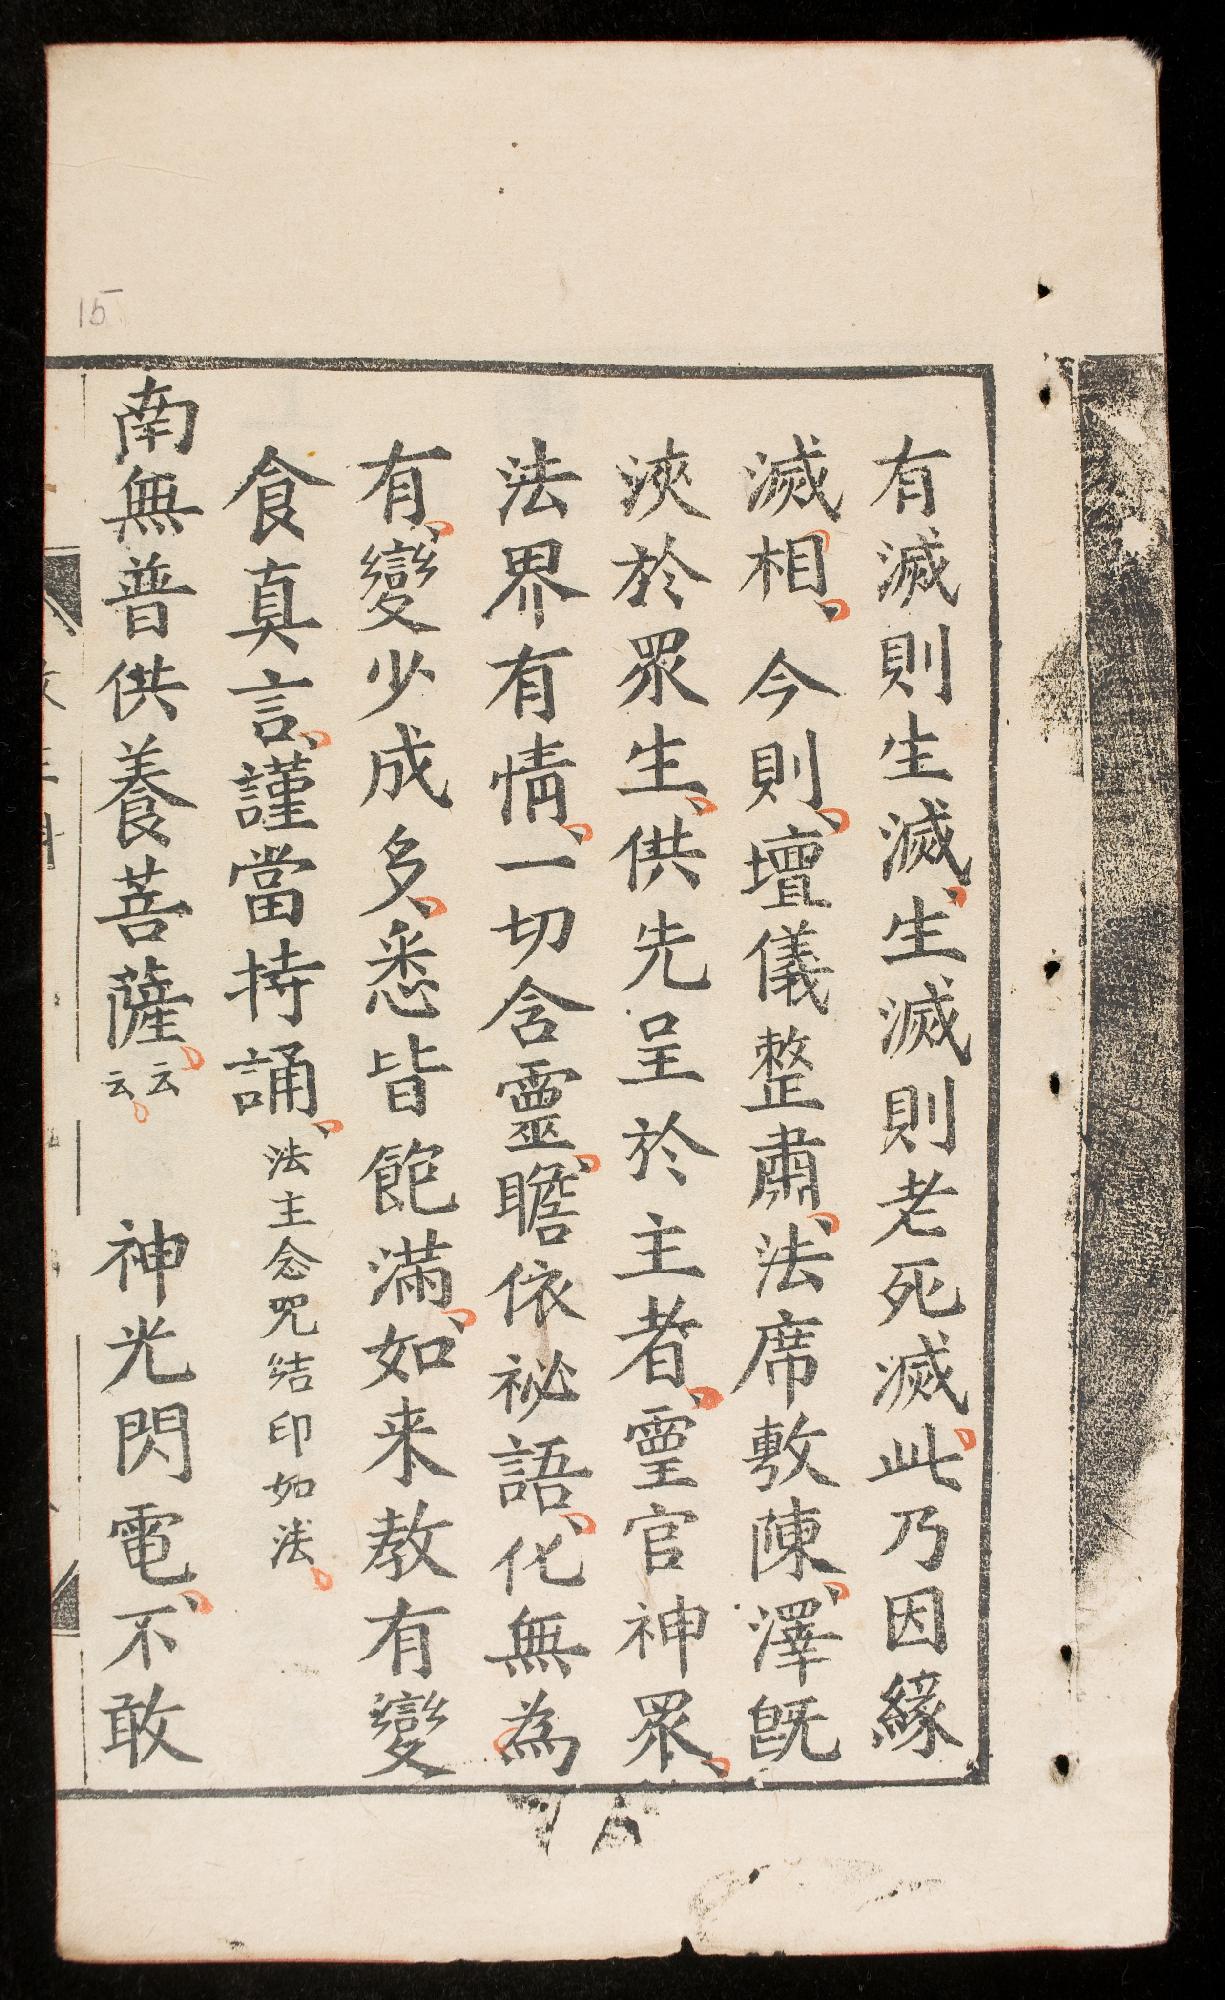 有滅則生滅生滅則老死滅此乃因緣
滅相今則壇儀整肅法席敷陳澤既
浹於眾生供先呈於主者霊官神眾
法界有情一切含靈瞻依祕語化無為
有變少成多悉皆飽滿如来教有變
食真言謹當持誦法主念咒结印如法
南無普供養菩薩云云 神光閃電不敢
15